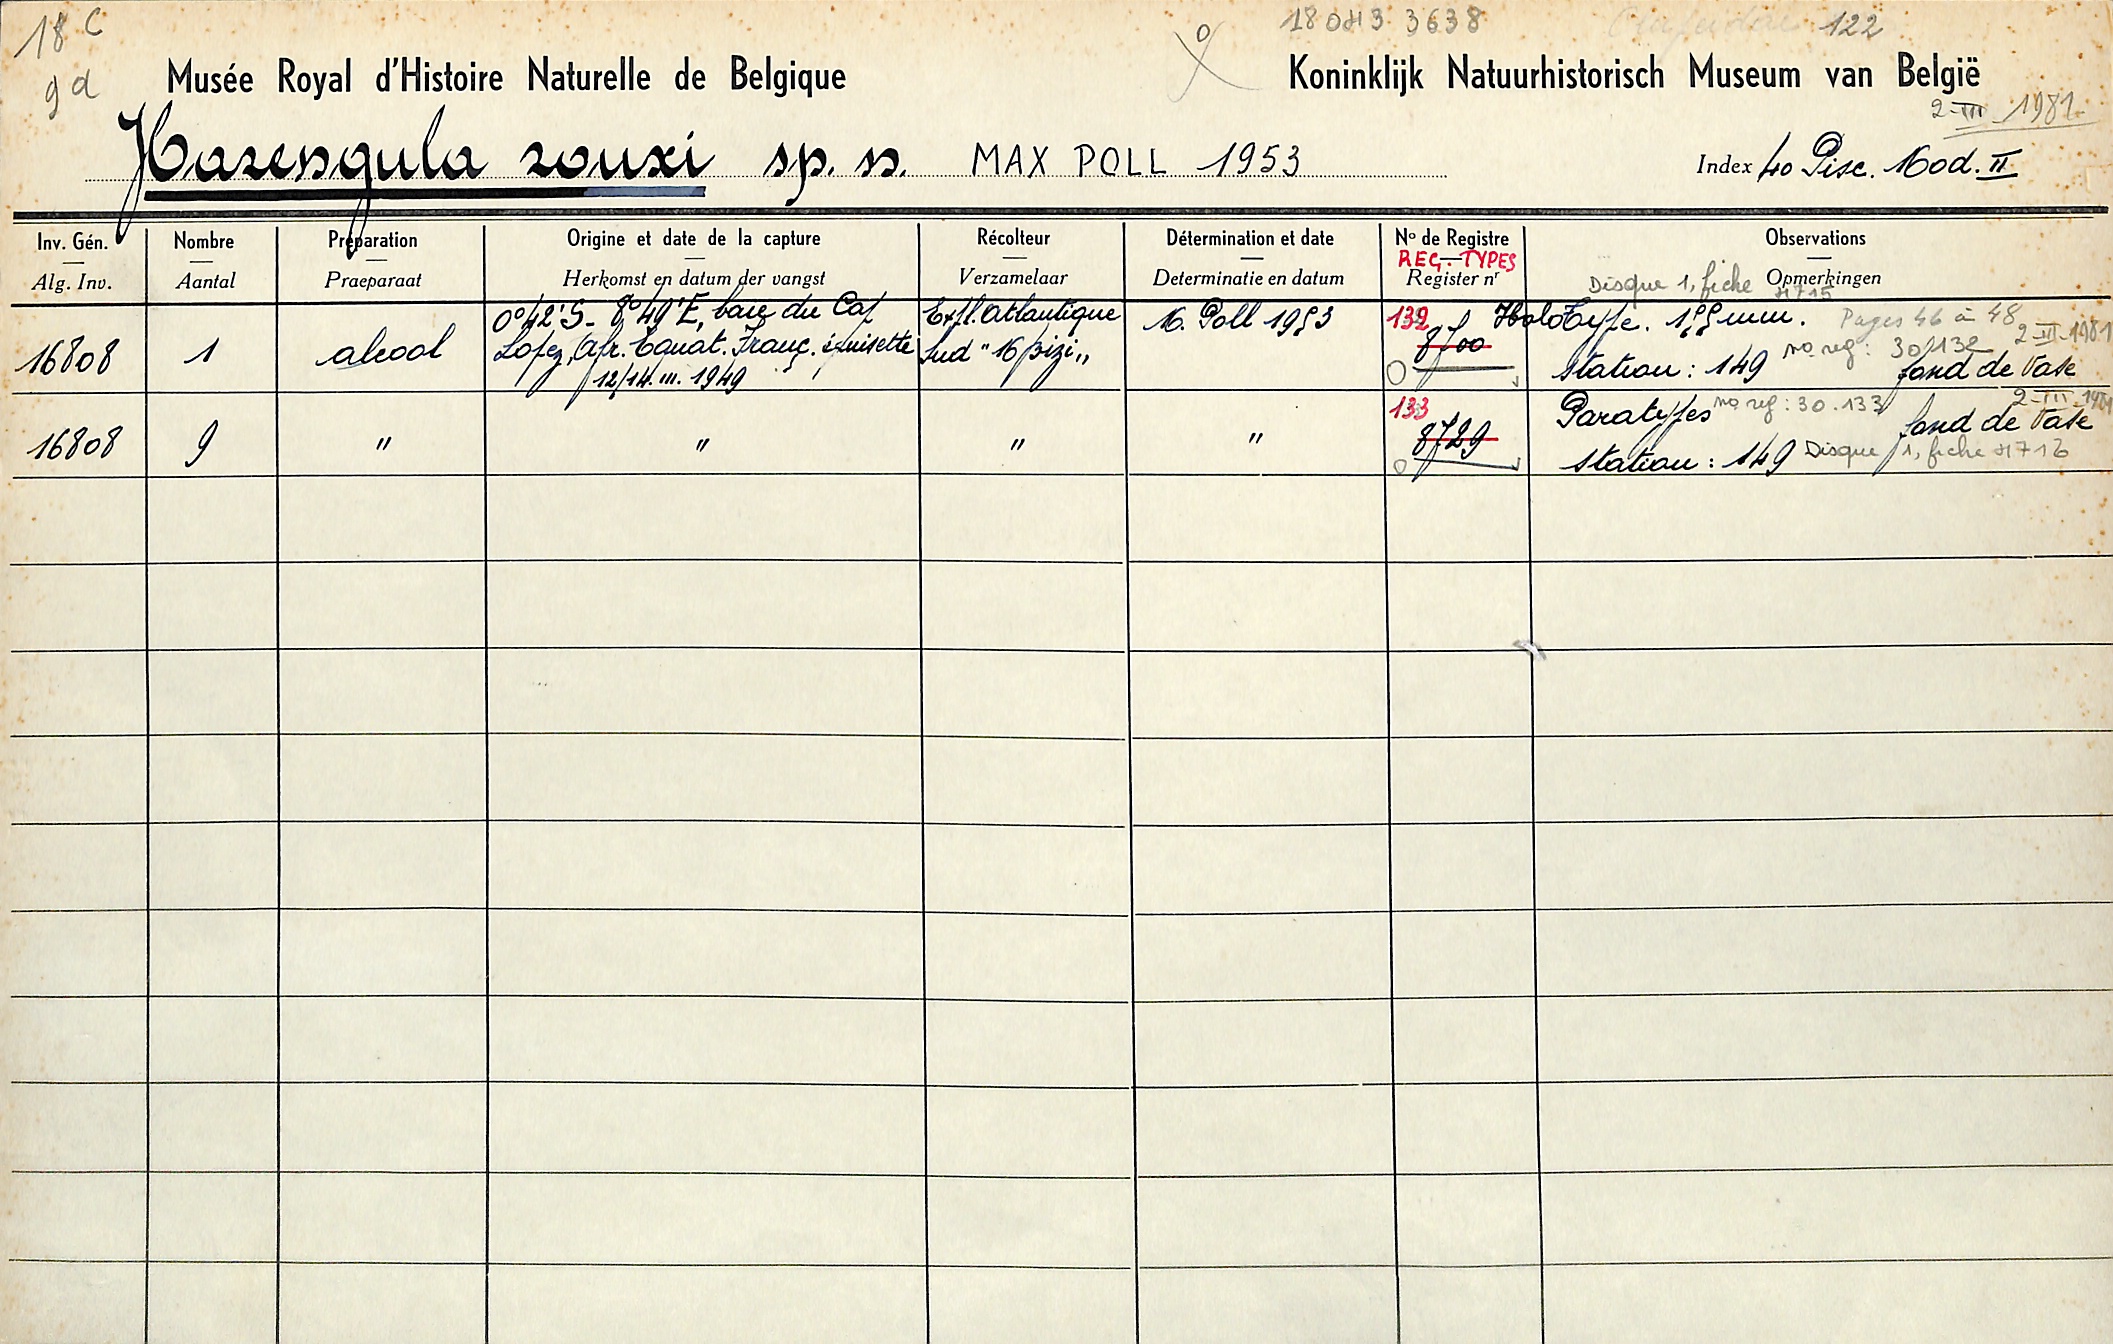 18 C 18043 3638 122
gd Musée Royal d'Histoire Naturelle de Belgique Koninklijk Natuurhistorisch Museum van België
2-III-1981
Harengula rouxi sp. n. MAX POLL 1953 Index 40 Pisc. Mod. II
Inv. Gén. Nombre Préparation Origine et date de la capture Récolteur Détermination et date No de Registre Observations
REG. TYPES
Alg. Inv. Aantal Praeparaat Herkomst en datum der vangst Verzamelaar Determinatie en datum Register nr Disque 1, fiche Opmerkingen
4715
0°42'S - 8°49'E, baie du Cap Expl. Atlantique M. Poll 1953 132 Holotype. 155 mm. Pages 46 à 48
16808 1 alcool Lopez, Afr. Equat. Franç. Sud "Mbizi" 8700 no reg: 30/132 2-III-1981
12/14.III.1949 Station: 149 fond de Vase
133 Paratypes no reg: 30.133 2-III-1981
16808 9 " " " " 8729 fond de Vase
Station: 149 Disque 1, fiche 4716